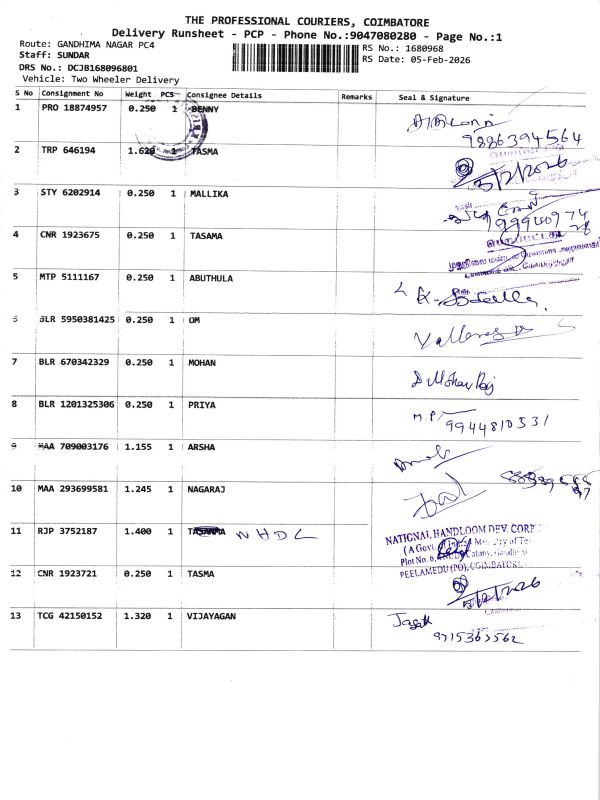 THE PROFESSIONAL COURIERS, COIMBATORE
Delivery Runsheet - PCP - Phone No.:9047080280 - Page No.:1
Route: GANDHIMA NAGAR PC4
Staff: SUNDAR
DRS No.: DCJB168096801
Vehicle: Two Wheeler Delivery
RS No.: 1680968
RS Date: 05-Feb-2026
S No Consignment No Weight PCS Consignee Details Remarks Seal & Signature
1 PRO 18874957 0.250 1 BENNY
9886394564
2 TRP 646194 1.620 1 TASMA
5/2/2026
3 STY 6202914 0.250 1 MALLIKA
4 CNR 1923675 0.250 1 TASAMA
5 MTP 5111167 0.250 1 ABUTHULA
6 BLR 5950381425 0.250 1 OM
7 BLR 670342329 0.250 1 MOHAN
D Mohan Raj
8 BLR 1201325306 0.250 1 PRIYA
M.P 9944810531
9 MAA 709003176 1.155 1 ARSHA
10 MAA 293699581 1.245 1 NAGARAJ
11 RJP 3752187 1.400 1 NHDC
NATIONAL HANDLOOM DEV. CORP
(A Govt. of
Plot No. 6, Colony,
PEELAMEDU (PO), COIMBATORE
12 CNR 1923721 0.250 1 TASMA
5/2/2026
13 TCG 42150152 1.320 1 VIJAYAGAN
9715363562